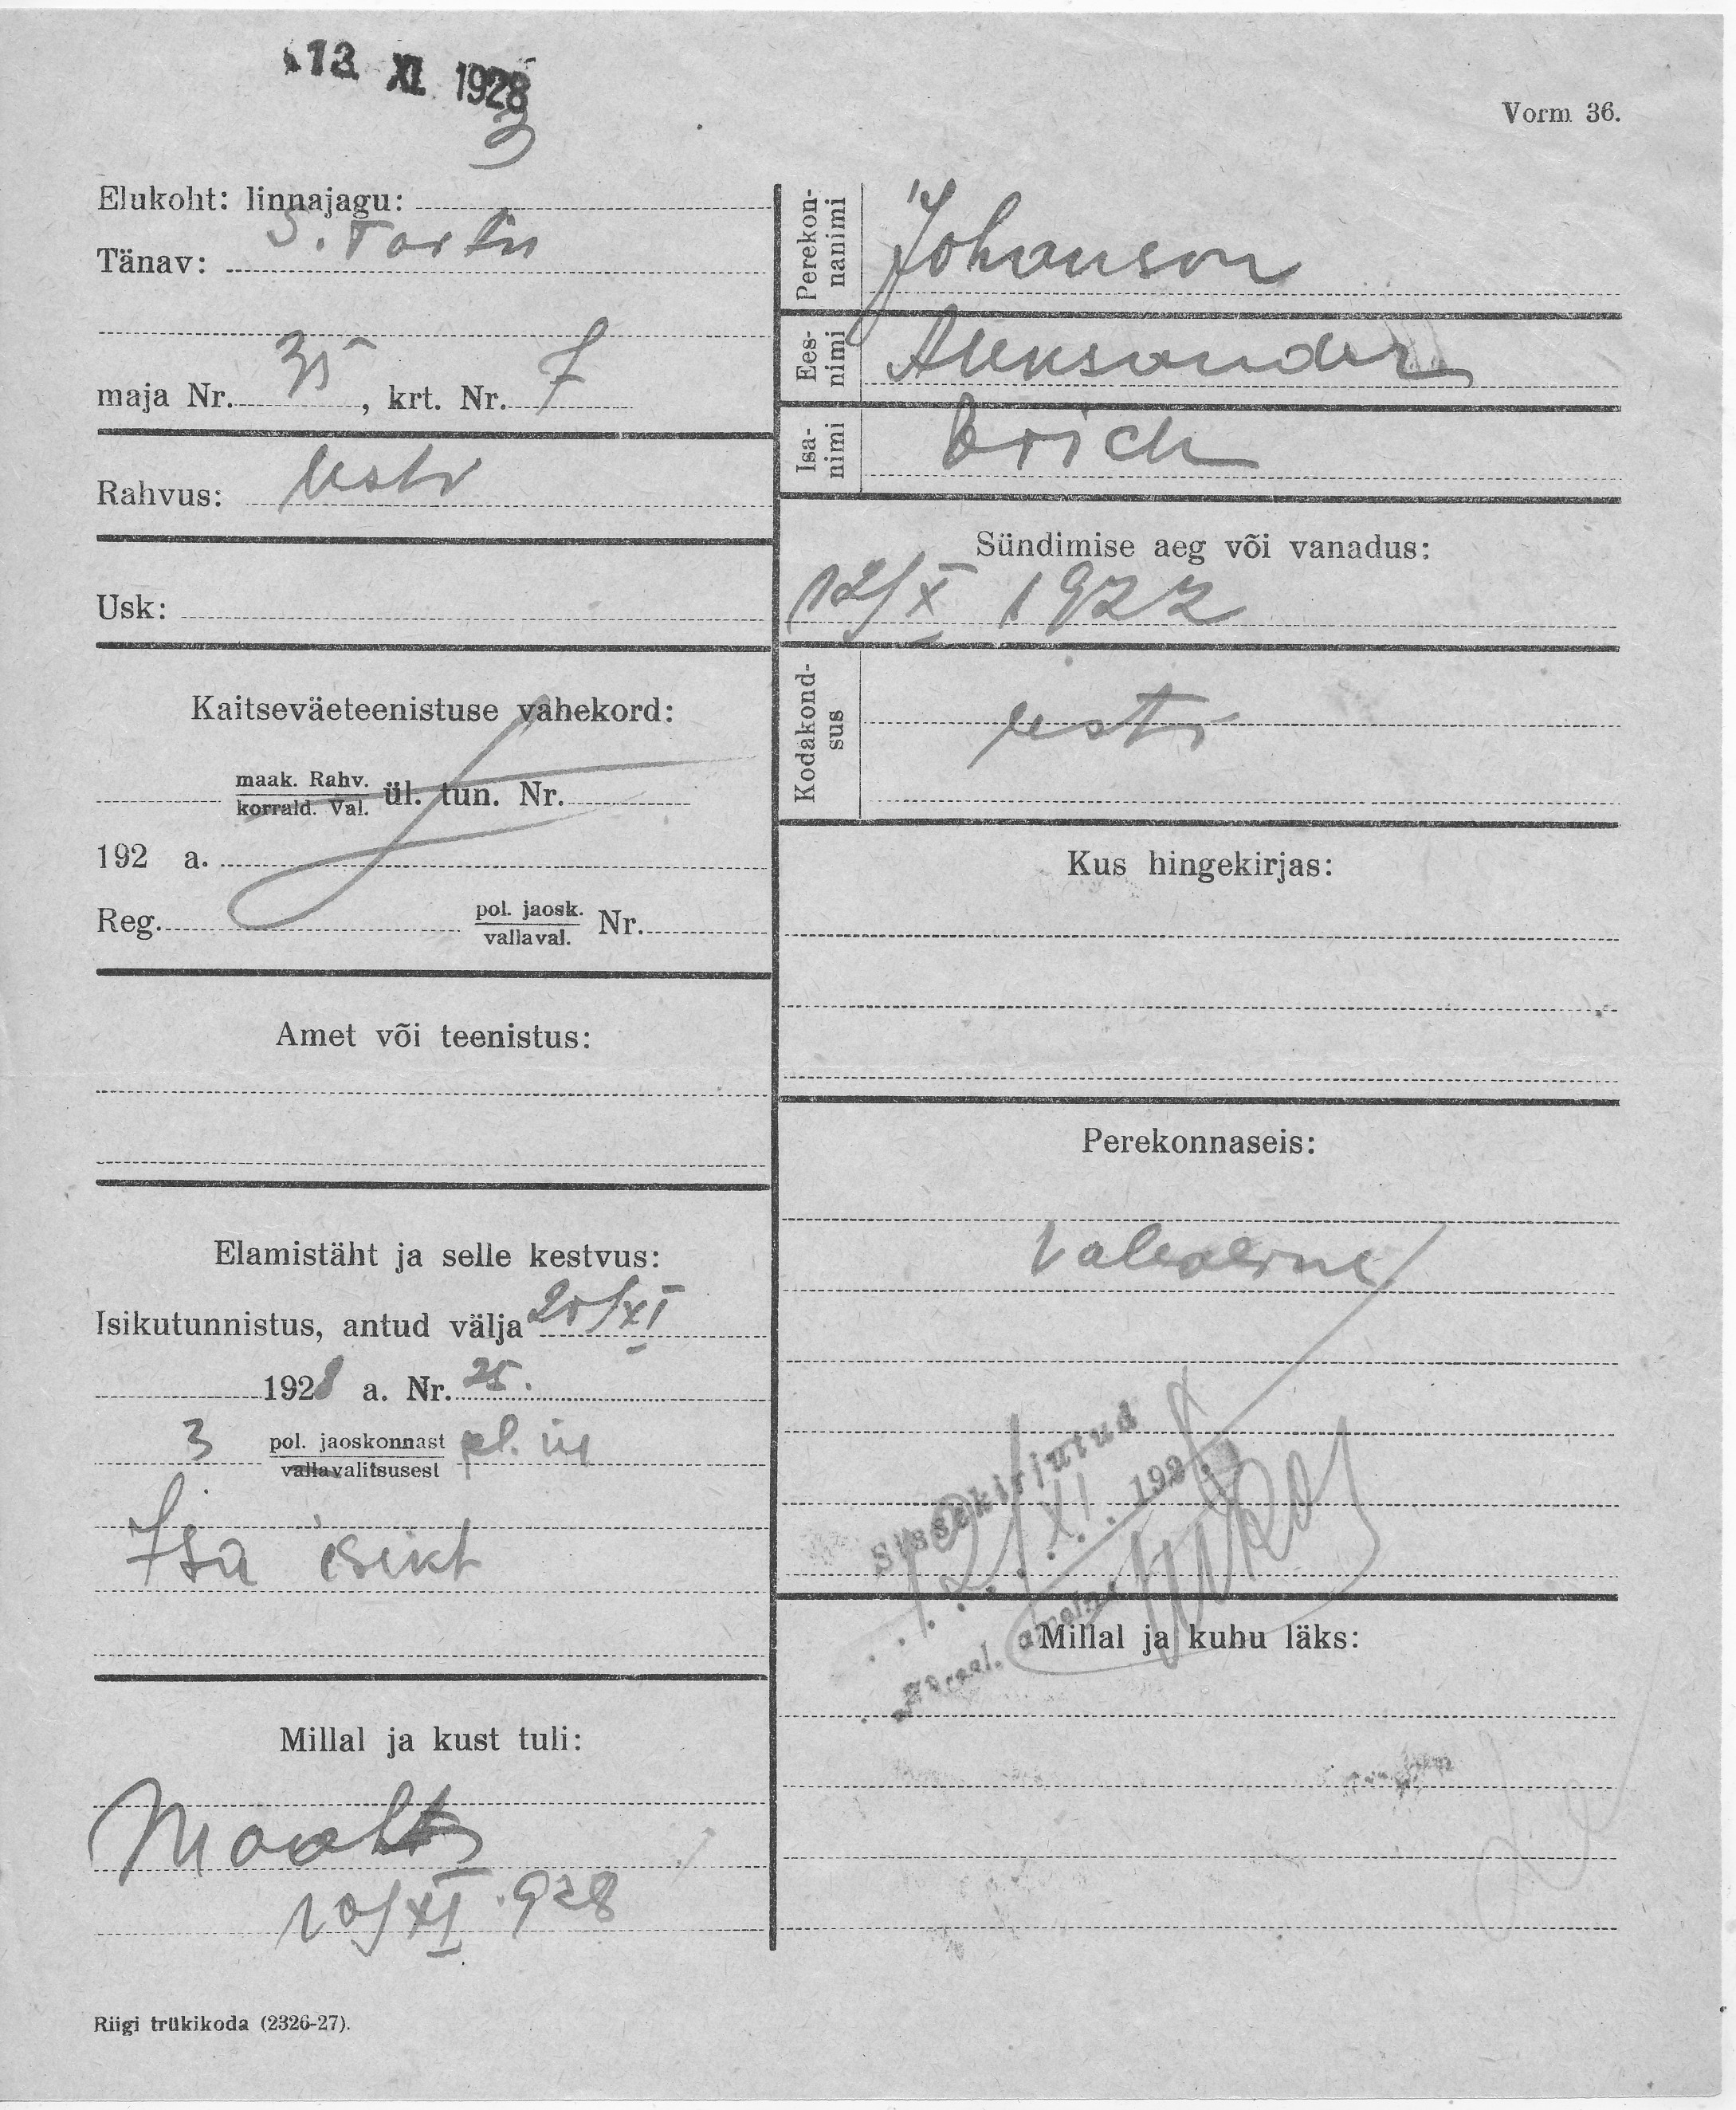 13 XI 1928
3
Vorm 36.
Elukoht: linnajagu:
Tänav: S. Tartu
maja Nr. 35, krt. Nr. 7
Rahvus: eesti
Usk:
Kaitseväeteenistuse vahekord:
maak. Rahv.
korrald. Val. ül. tun. Nr.
192 a.
Reg. pol. jaosk. Nr.
vallaval.
Amet või teenistus:
Elamistäht ja selle kestvus:
Isikutunnistus, antud välja 20/XI
1928 a. Nr. 25.
3 pol. jaoskonnast
vallavalitsusest
Isa isikt
Millal ja kust tuli:
Maalt
10/XI .928
Riigi trükikoda (2326-27).
Perekon-
nanimi
Johanson
Ees-
nimi
Aleksander
Isa-
nimi
Erich
Sündimise aeg või vanadus:
12/X 1922
Kodakond-
sus
eesti
Kus hingekirjas:
Perekonnaseis:
Vallaline
Sissekirjutud
12/XI 192
Millal ja kuhu läks: